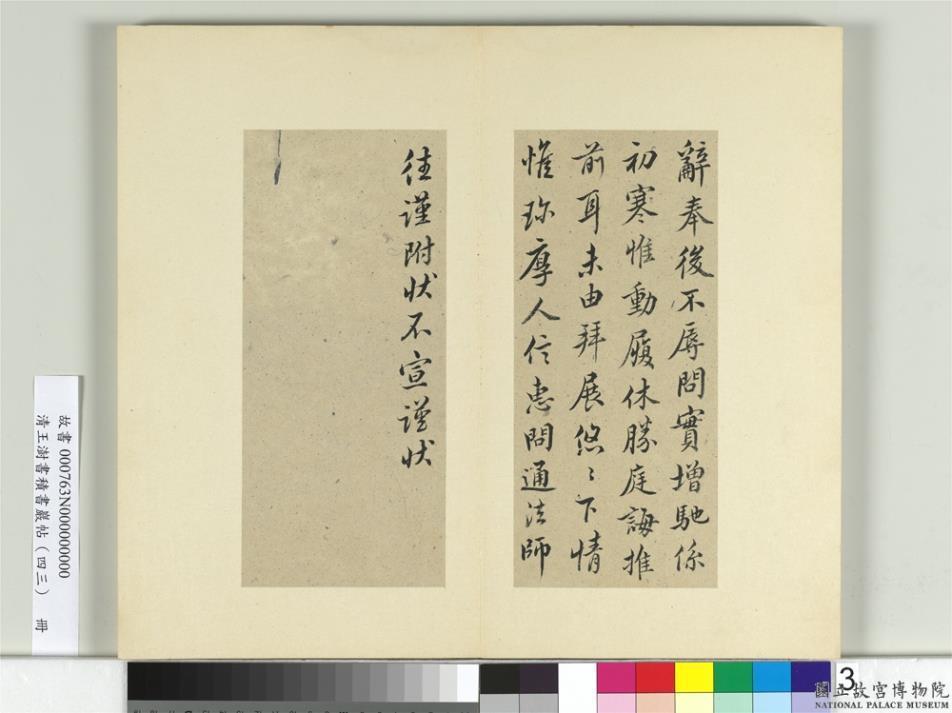 辭奉後不辱問實增馳係
初寒惟動履休勝庭誨推
前耳未由拜展悠〻下情
惟珎厚人信惠問通法師
往謹附狀不宣謹狀
故書 000763N000000000
清王澍書積書巖帖（四三） 冊
3
國立故宮博物院
NATIONAL PALACE MUSEUM